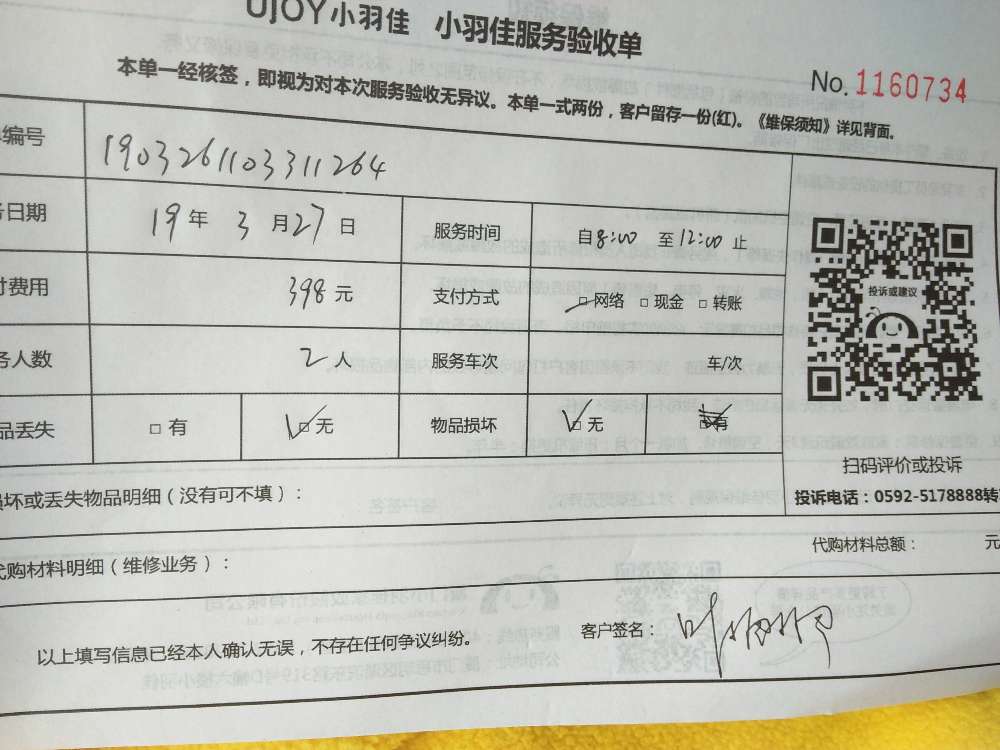 UJOY小羽佳 小羽佳服务验收单
No.1160734
本单一经核签，即视为对本次服务验收无异议。本单一式两份，客户留存一份(红)。《维保须知》详见背面。
编号 1903261103311264
日期 19年3月27日 服务时间 自8:00 至12:00止
费用 398元 支付方式 □网络 □现金 □转账
务人数 2人 服务车次 车/次
品丢失 □有 □无 物品损坏 □无 □有
投诉或建议
扫码评价或投诉
投诉电话：0592-5178888转
损坏或丢失物品明细（没有可不填）：
代购材料总额： 元
代购材料明细（维修业务）：
以上填写信息已经本人确认无误，不存在任何争议纠纷。
客户签名：